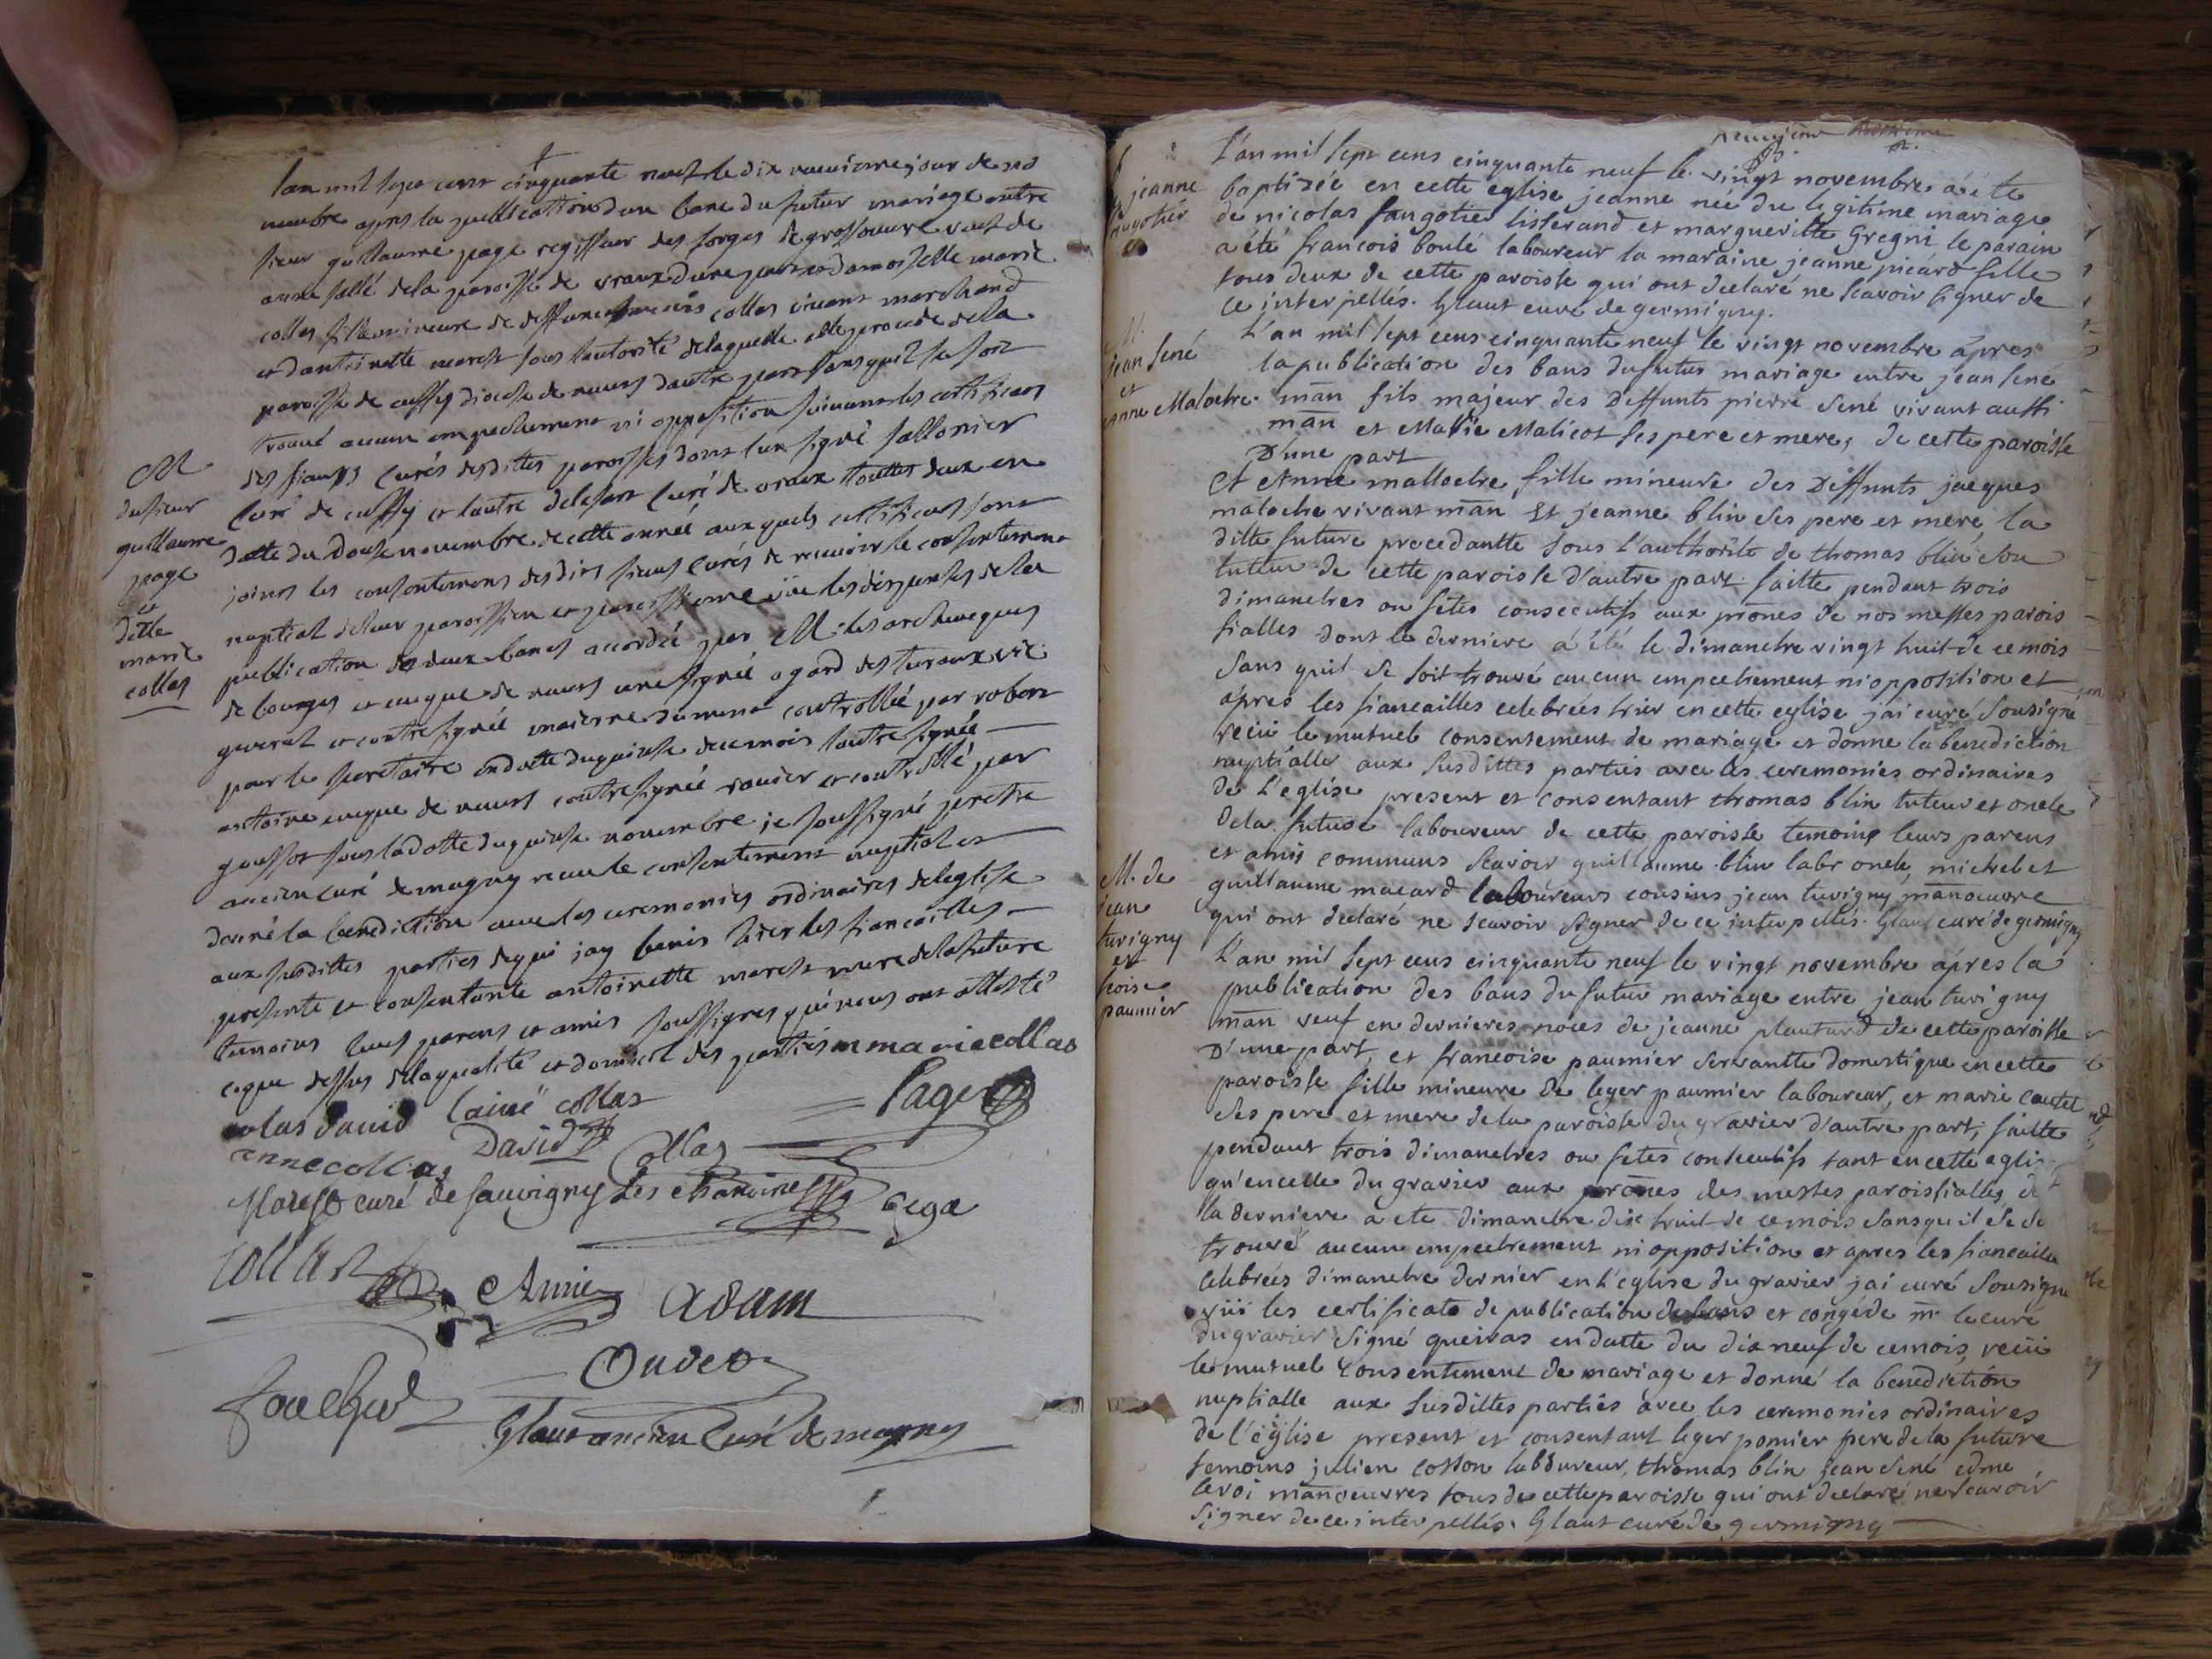 lan mil sept cent cinquante neuf le dix neuvieme jour de no
vembre apres la publication dun banc du futur mariage entre
sieur guillaume page regisseur des forges de grossouvre veuf de
anne sallé dela paroisse de vraux dune part et damoiselle marie
collas fille mineure de deffunt collas vivant marchand
et dantoinette marest sous lautorité delaquelle elle procede dela
paroisse de cuffy diocese de nevers dautre part sans quil se soit
trouvé aucun empechement ni opposition suivant les certificats
des sieurs curés desdittes paroisses dont lun signé sallonier
curé de cuffy et lautre curé de vraux touttes deux en
datte du douse novembre de cette année auxquels certificats sont
joints les consentemens desdits sieurs curés de recevoir le consentement
nuptial deleur paroissien et paroissienne vüe les dispenses dela
publication de deux bancs accordée par M. les archeveques
de bourges et eveque de nevers une signée agard des turaux vic.
general et contresignée dument controllée par robert
pour le secretaire en datte du quinse de ce mois lautre signée
antoine eveque de nevers contresignée et controllé par
goussot sous la datte du quinse novembre je soussigné pretre
ancien curé de magny receu le consentement nuptial et
donné la benediction avec les ceremonies ordinaires deleglise
aux susdittes parties dequi jay benis hier les fiancailles
presente et consentante antoinette marest mere dela future
temoins leurs parens et amis soussignes qui nous ont attesté
ce que dessus delaqualité et domicil des parties m marie collas
M
du sieur
guillaume
page
et
dlle
marie
collas
colas david lainé collas Page
David
anne collas Collas
Marest curé de sauvigny les chanoines Pege
Collas
Amie Adam
Oudet
Glaut ancien curé de magny
L'an mil sept cens cinquante neuf le vingt novembre á été
baptisée en cette eglise jeanne née du legitime mariage
de nicolas fangotier tisserand et margueritte Gregni le parain
a été francois boulé laboureur la maraine jeanne picard fille
tous deux de cette paroisse qui ont declaré ne scavoir signer de
ce interpellés. Glaut curé de germigny.
jeanne
fangotier
L'an mil sept cens cinquante neuf le vingt novembre áprès
la publication des bans du futur mariage entre jean sené
man fils majeur des Deffunts pierre sené vivant aussi
man et Marie Malicot ses pere et mere, de cette paroisse
D'une part
M.
jean sené
et
anne Maloche.
et Anne malloche fille mineure des Deffunts jacques
maloche vivant man Et jeanne blin ses pere et mere, la
ditte future procedantte sous l'authorite de thomas blin son
tuteur de cette paroisse d'autre part. faitte pendant trois
dimanches ou fêtes consecutifs aux prônes de nos messes parois
sialles dont la derniere á été le dimanche vingt huit de ce mois
sans quil se soit trouvé aucun empechement ni opposition et
après les fiancailles celebrées hier en cette eglise j'ai curé sousigne
reçu le mutuel consentement de mariage et donne la benediction
nuptialle aux susdittes parties avec les ceremonies ordinaires
de L'eglise present et consentant thomas blin tuteur et oncle
dela future laboureur de cette paroisse temoins leurs parens
et amis communs scavoir guillaume blin labr oncle, michel et
guillaume macard laboureurs cousins jean tuvigny manoeuvre
qui ont declaré ne scavoir signer de ce interpellés. Glaut curé de germigny
M. de
jean
tuvigny
et
fcoise
paumier
L'an mil sept cens cinquante neuf le vingt novembre áprès la
publication des bans du futur mariage entre jean tuvigny
man veuf en dernieres noces de jeanne plautard de cette paroisse
D'une part, et francoise paumier servantte domestique en cette
paroisse fille mineure de leger paumier laboureur, et marie cautel
ses pere et mere de la paroisse du gravier d'autre part, faitte
pendant trois dimanches ou fêtes consecutifs tant en cette eglis
qu'en celle du gravier aux prônes des messes paroissialles, d
la derniere a ete dimanche dix huit de ce mois sans qu'il se s
trouvé aucun empechement ni opposition et après les fiancaille
celebrées dimanche dernier en L'eglise du gravier j'ai curé sousigne
vüs les certificats de publication de bans et congé de mr le curé
du gravier signé queiras en datte du dix neuf de ce mois, reçu
le mutuel consentement de mariage et donné la benediction
nuptialle aux susdittes parties avec les ceremonies ordinaires
de l'église present et consentant leger pomier pere de la future
temoins julien cotton laboureur, thomas blin jean sené edme
leroi manoeuvres tous de cette paroisse qui ont declaré ne scavoir
signer de ce interpellés. Glaut curé de germigny